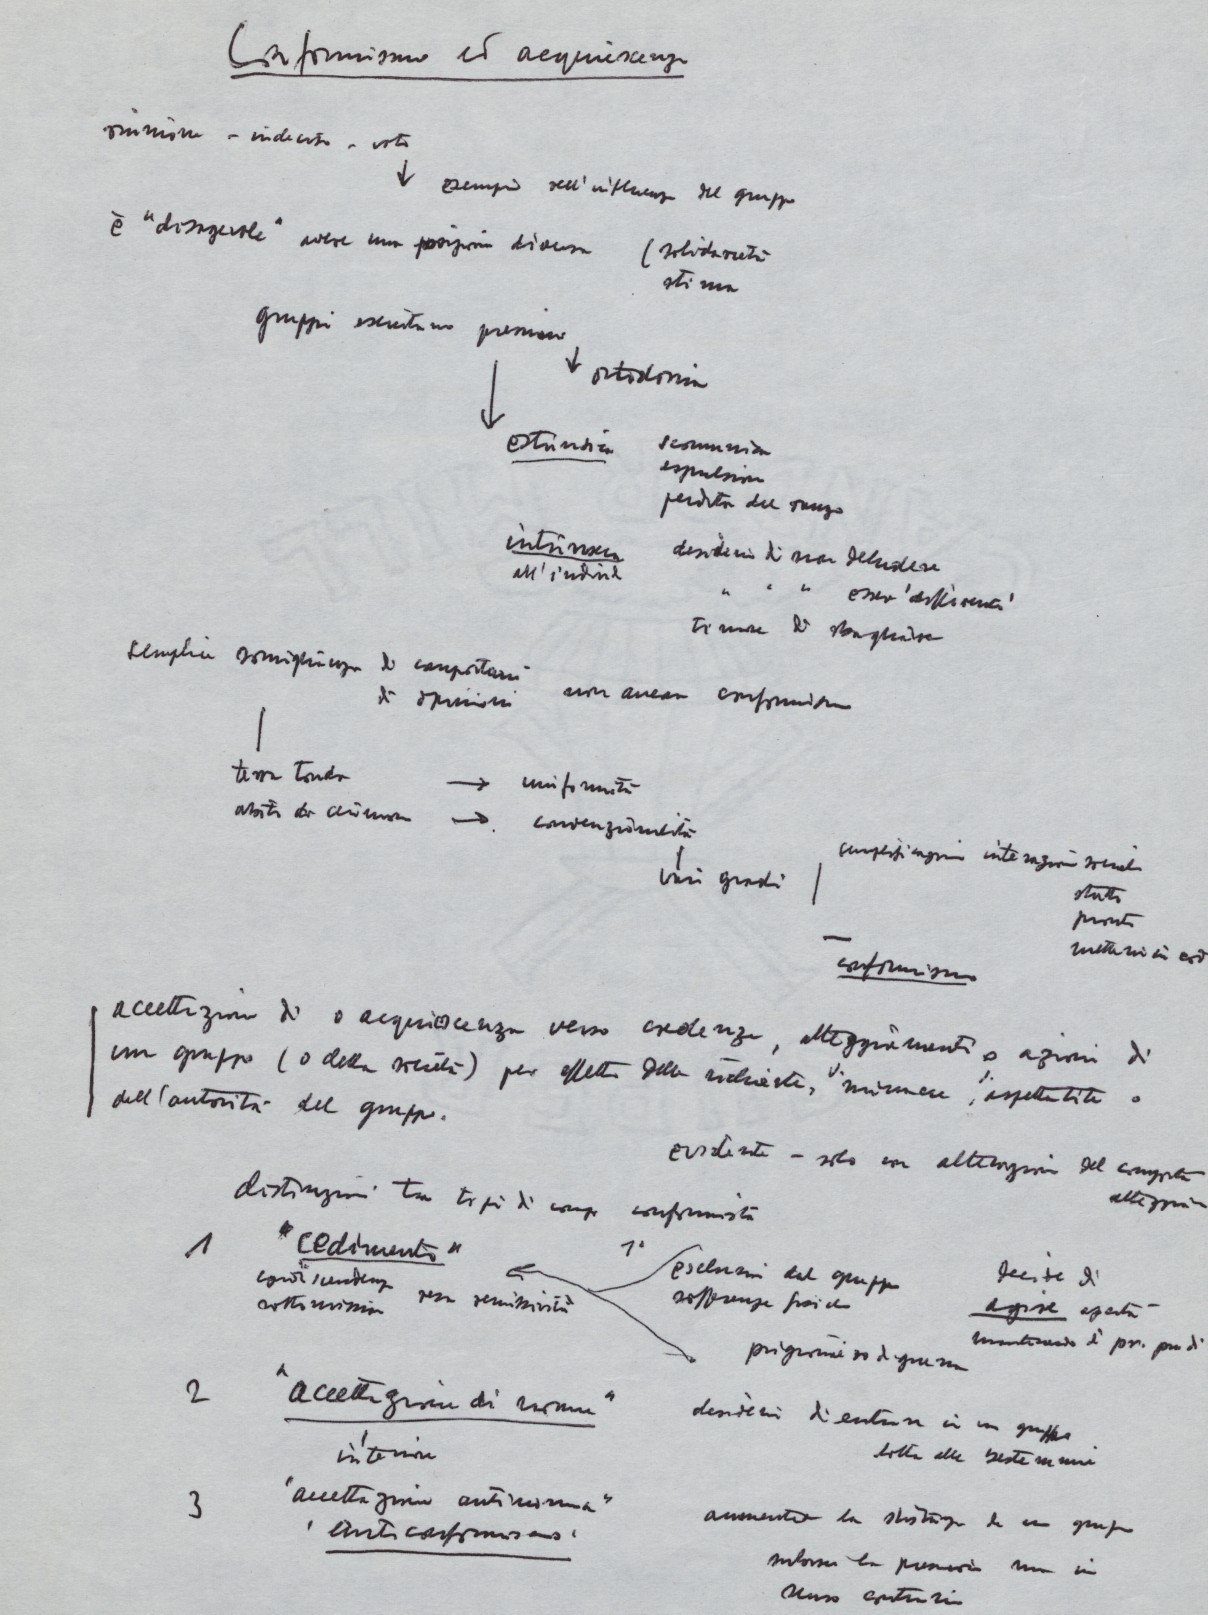 Conformismo ed acquiescenza
riunione - indeciso - voto
↓ esempio dell'influenza del gruppo
è "disagevole" avere una posizione diversa (solidarietà
stima
gruppi esercitano pressione
↓ ortodossia
↓
estrinseca scomunica
espulsione
perdita del rango
intrinseca desiderio di non deludere
all'individ " " " esser 'differenti'
timore di sbagliare
semplice somiglianza di comportam
di opinioni non ancora conformismo
terra tonda → uniformità
abiti da cerimonia → convenzionalità
vari gradi semplificazioni interazioni sociali
conformismo
accettazione di o acquiescenza verso credenze, atteggiamenti o azioni di
un gruppo (o della società) per effetto delle richieste, minacce, aspettative o
dell'autorità del gruppo.
evidente - solo con alterazioni del comporta
atteggiam
distinzioni tra tipi di comp conformista
1 "cedimento" 1° esclusioni dal gruppo decide di
condiscendenza sottomissione resa remissività sofferenze fisiche agire
prigioniero di guerra
2 "accettazione di norme" desiderio di entrare in un gruppo
interiore lotta alle bestemmie
3 "accettazione antinorma" aumentare la distanza da un gruppo
'anticonformismo' la pressione ma in
senso contrario